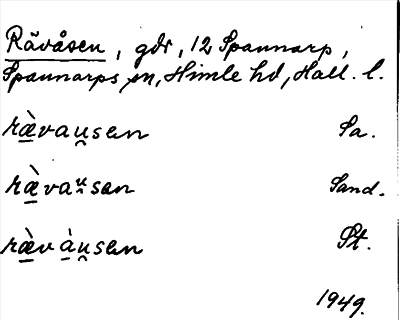 Rävåsen, gdr, 12 Spannarp,
Spannarps sn, Himle hd, Hall. l.
ræ̀vau̯sen Sa.
ræ̀vau̯sen Sand.
ræ̀vàu̯sen St.
1949.